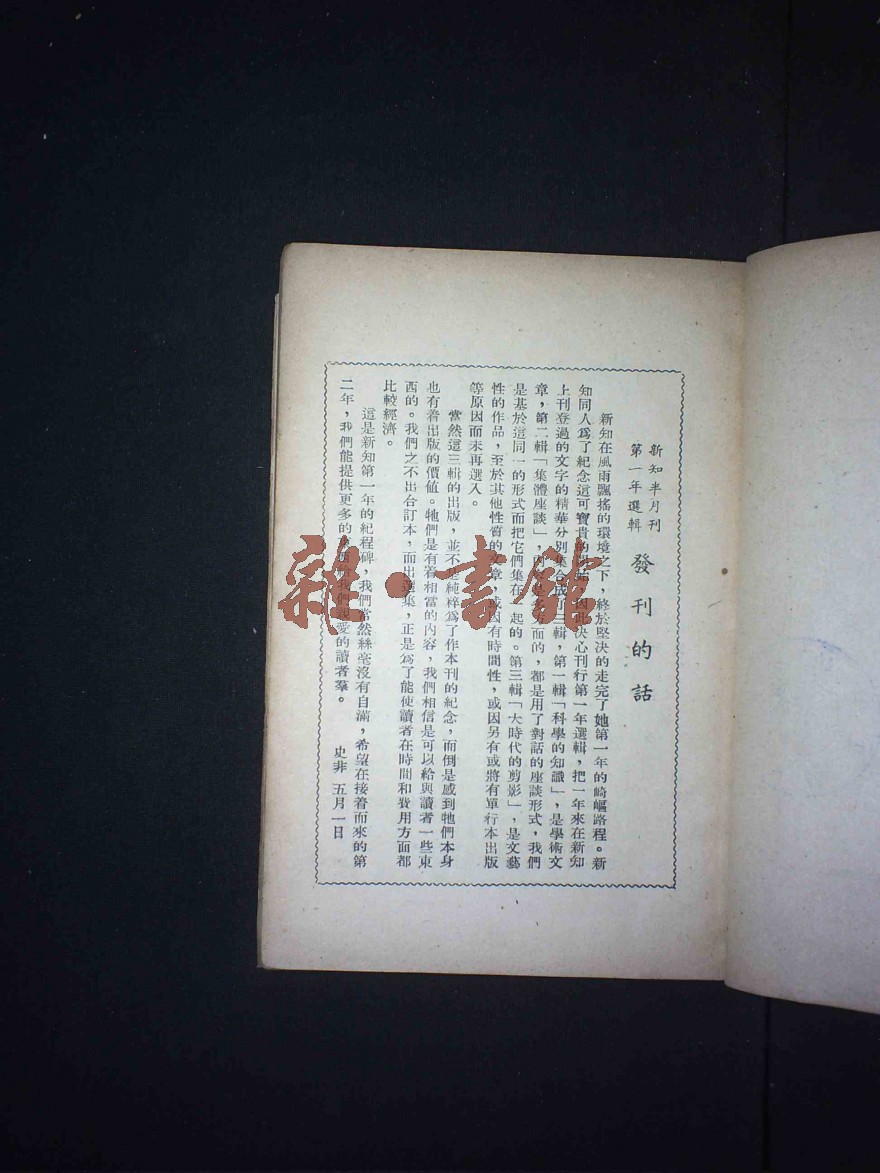 新知半月刊
第一年選輯
發刊的話
新知在風雨飄搖的環境之下，終於堅決的走完了她第一年的崎嶇路程。新
知同人爲了紀念這可寶貴的開始，因此决心刊行第一年選輯，把一年來在新知
上刊登過的文字的精華分別集合成了三輯，第一輯「科學的知識」，是學術文
章，第二輯「集體座談」，內容是多方面的，都是用了對話的座談形式，我們
是基於這同一的形式而把它們集在一起的。第三輯「大時代的剪影」，是文藝
性的作品，至於其他性質的文章，或因有時間性，或因另有或將有單行本出版
等原因而未再選入。
當然這三輯的出版，並不是純粹爲了作本刊的紀念，而倒是感到牠們本身
也有着出版的價值。牠們是有着相當的內容，我們相信是可以給與讀者一些東
西的。我們之不出合訂本，而出選集，正是爲了能使讀者在時間和費用方面都
比較經濟。
這是新知第一年的紀程碑，我們當然絲毫沒有自滿，希望在接着而來的第
二年，我們能提供更多的給我們親愛的讀者羣。
史非 五月一日
雜·書館